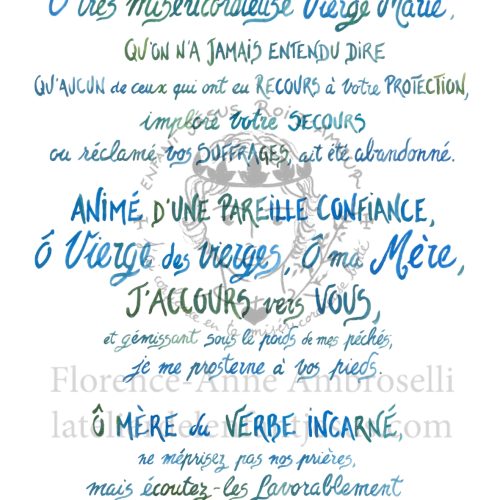 Ô très miséricordieuse Vierge Marie,
QU'ON N'A JAMAIS ENTENDU DIRE
QU'AUCUN de ceux qui ont eu RECOURS à votre PROTECTION,
imploré votre SECOURS
ou réclamé vos SUFFRAGES, ait été abandonné.
ANIMÉ D'UNE PAREILLE CONFIANCE,
Ô Vierge des vierges, Ô ma Mère,
J'ACCOURS vers VOUS,
et gémissant sous le poids de mes péchés,
je me prosterne à vos pieds.
Florence-Anne Ambroselli
Ô MÈRE du VERBE INCARNÉ,
ne méprisez pas nos prières,
mais écoutez-les favorablement